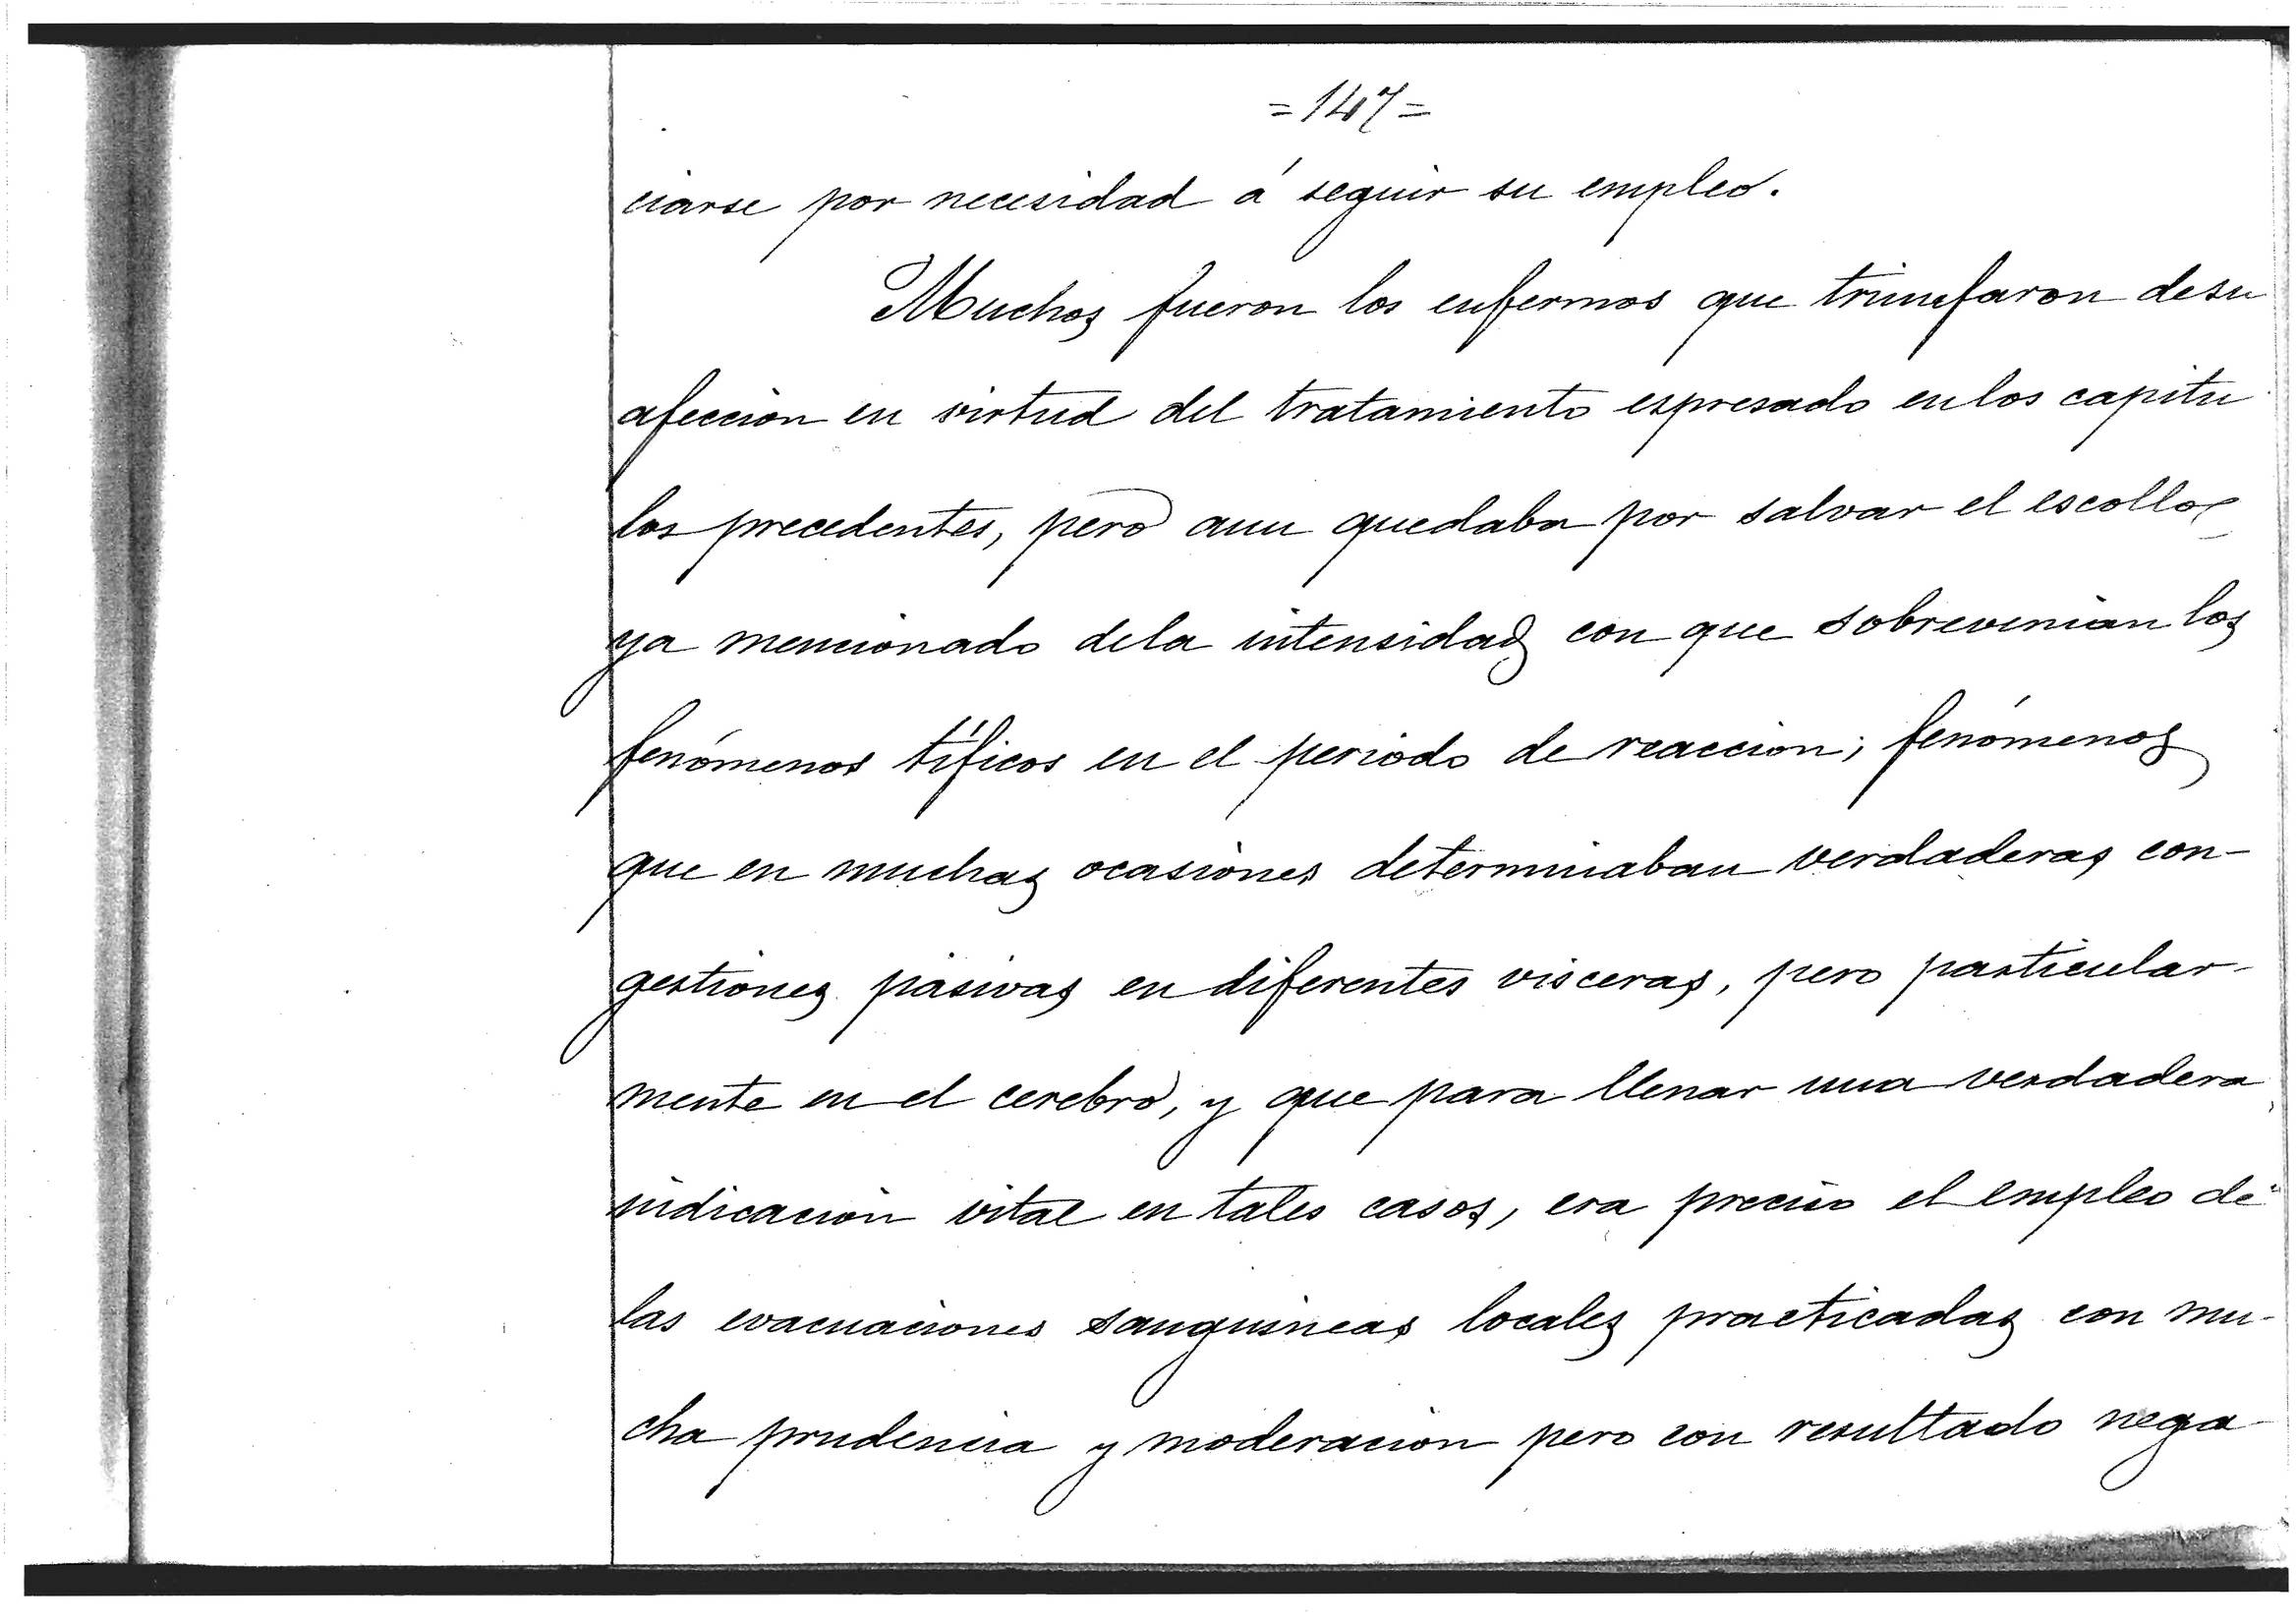 =147=
ciarse por necesidad á seguir su empleo.
Muchos fueron los enfermos que triunfaron de su
afeccion en virtud del tratamiento espresado en los capitu
los precedentes, pero aun quedaba por salvar el escollo
ya mencionado de la intensidad con que sobrevenian los
fenómenos tíficos en el periodo de reaccion; fenómenos
que en muchas ocasiones determinaban verdaderas con-
gestiones pasivas en diferentes visceras, pero particular-
mente en el cerebro, y que para llenar una verdadera
indicacion vital en tales casos, era preciso el empleo de
las evacuaciones sanguineas locales practicadas con mu-
cha prudencia y moderacion pero con resultado nega-